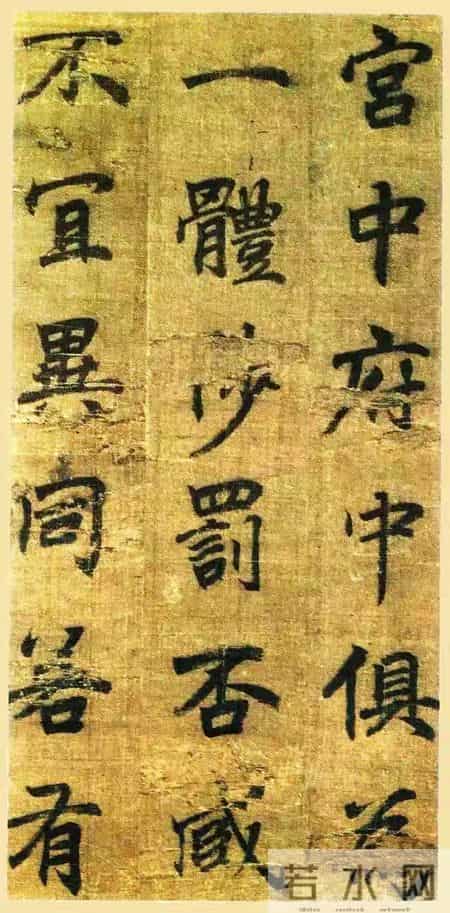 宮中府中俱為
一體陟罰否臧
不宜異同若有
若水网